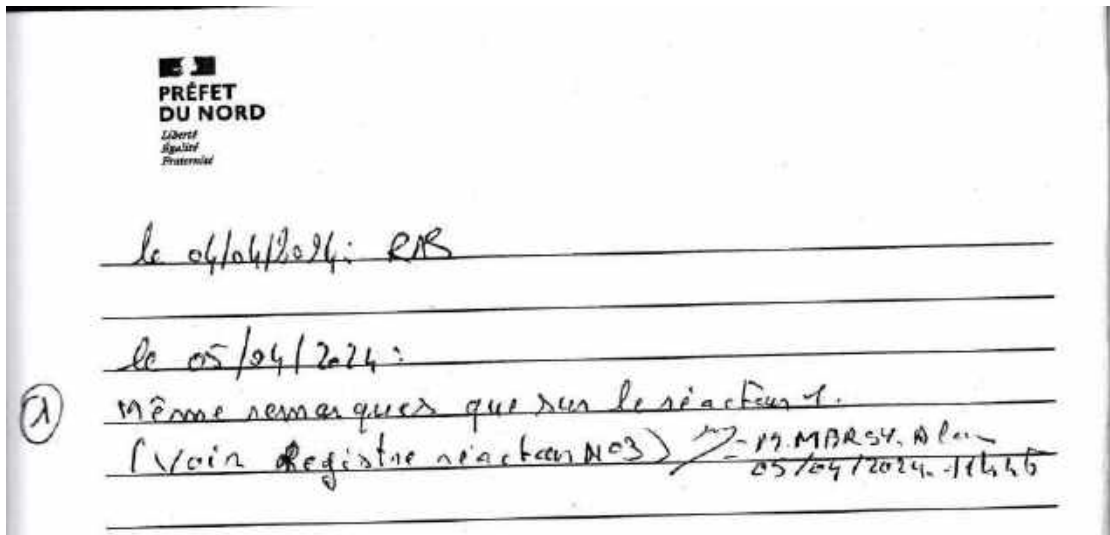 PRÉFET
DU NORD
Liberté
Égalité
Fraternité
le 04/04/2024: RAS
le 05/04/2024:
① Même remarques que sur le réacteur 1.
(Voir Registre réacteur N03) M. MARSY. Alain
05/04/2024. 11h45